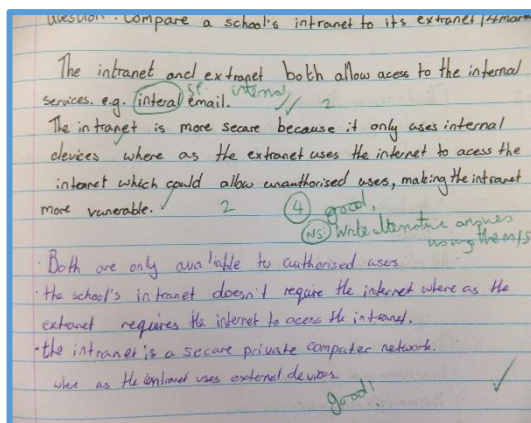 Question. Compare a school's intranet to its extranet (4 marks
The intranet and extranet both allow acess to the internal
services. e.g. interal email. sp. internal 2
The intranet is more secure because it only uses internal
devices where as the extranet uses the internet to acess the
intranet which could allow unauthorised users, making the intranet
more vunerable. 2 4 good!
NS: Write alternative answer
using the m/s
· Both are only available to authorised users.
· the school's intranet doesn't require the internet where as the
extranet requires the internet to acess the intranet.
· the intranet is a secure private computer network.
where as the extranet uses external devices.
good!